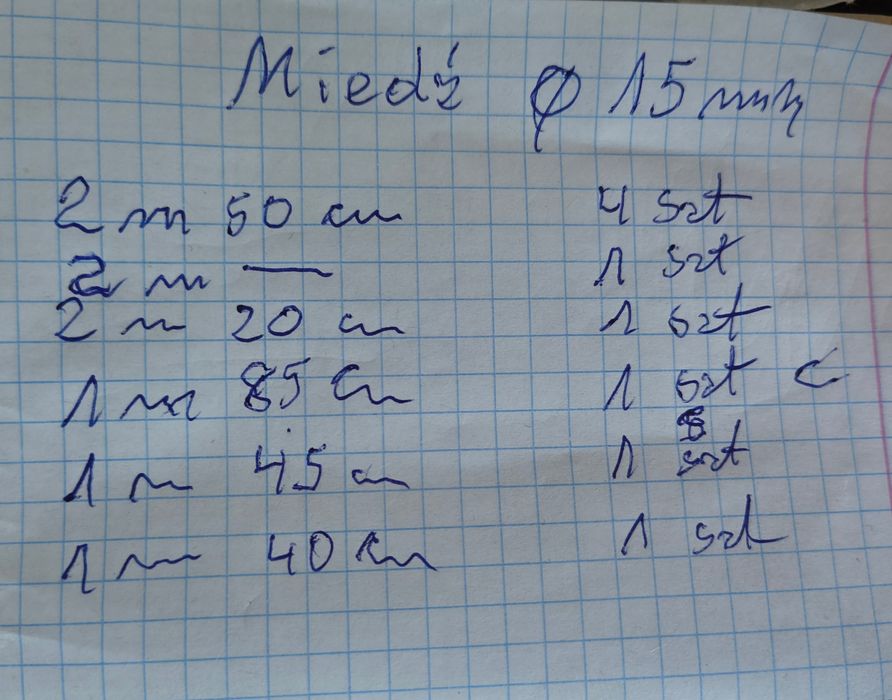 Miedź Ø 15 mm
2 m 50 cm 4 szt
2 m — 1 szt
2 m 20 cm 1 szt
1 m 85 cm 1 szt C
1 m 45 cm 1 szt
1 m 40 cm 1 szt